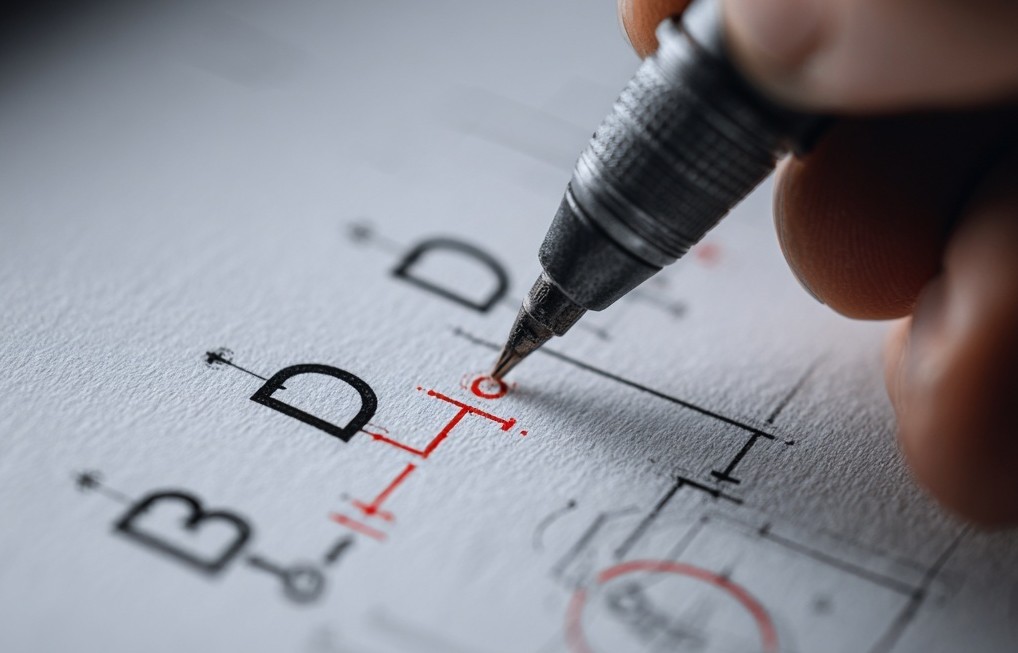 D
D
B